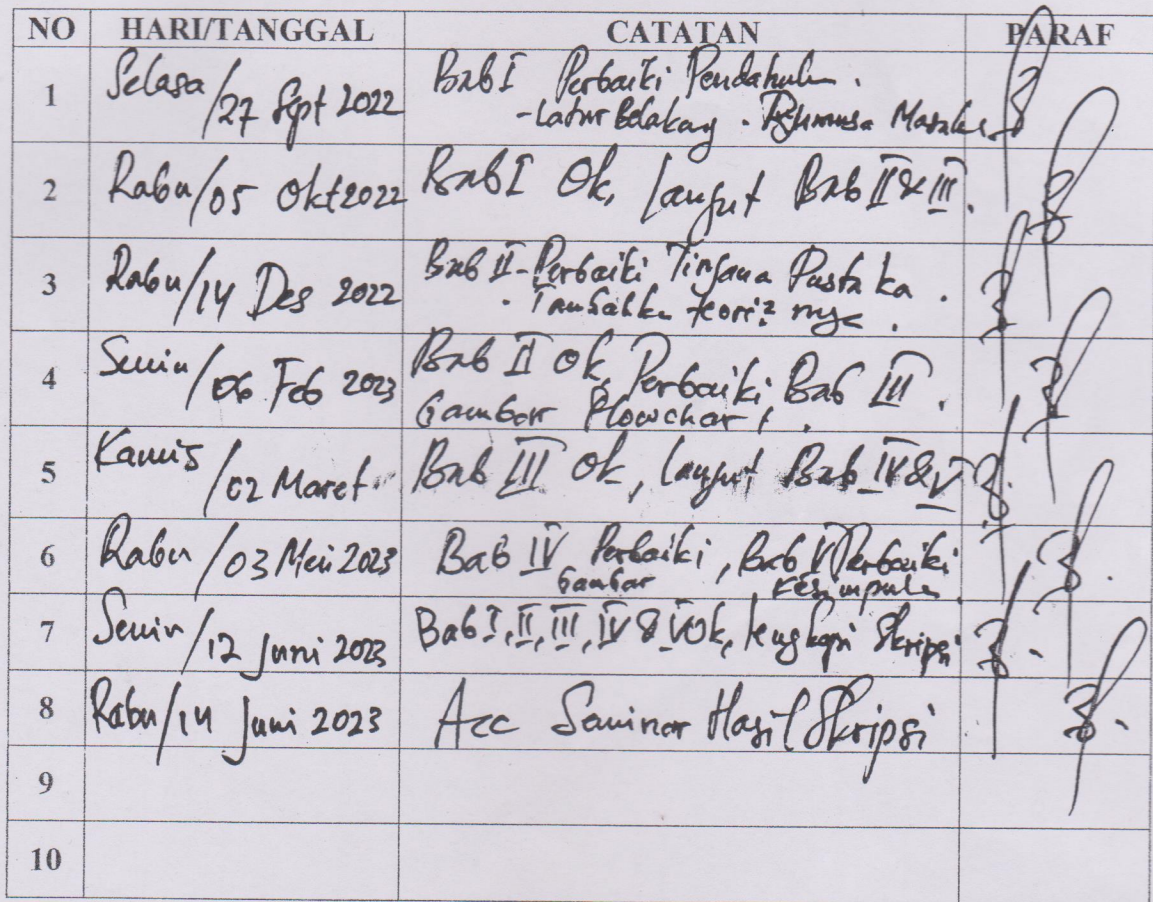 NO HARI/TANGGAL CATATAN PARAF
1 Selasa/27 Sept 2022 Bab I Perbaiki Pendahulu.
- Latar Belakag . Rumusa Masalah
2 Rabu/05 Okt 2022 Bab I Ok, lanjut Bab II & III.
3 Rabu/14 Des 2022 Bab II - Perbaiki Tinjaua Pustaka .
- Tambahka teori² nya .
4 Senin/06 Feb 2023 Bab II Ok, Perbaiki Bab III .
Gambar Flowchart .
5 Kamis/02 Maret Bab III Ok, lanjut Bab IV & V
6 Rabu/03 Mei 2023 Bab IV Perbaiki, Bab V Perbaiki
Gambar Kesimpula
7 Senin/12 Juni 2023 Bab I, II, III, IV & V Ok, lengkapi Skripsi
8 Rabu/14 Juni 2023 Acc Seminar Hasil Skripsi
9
10